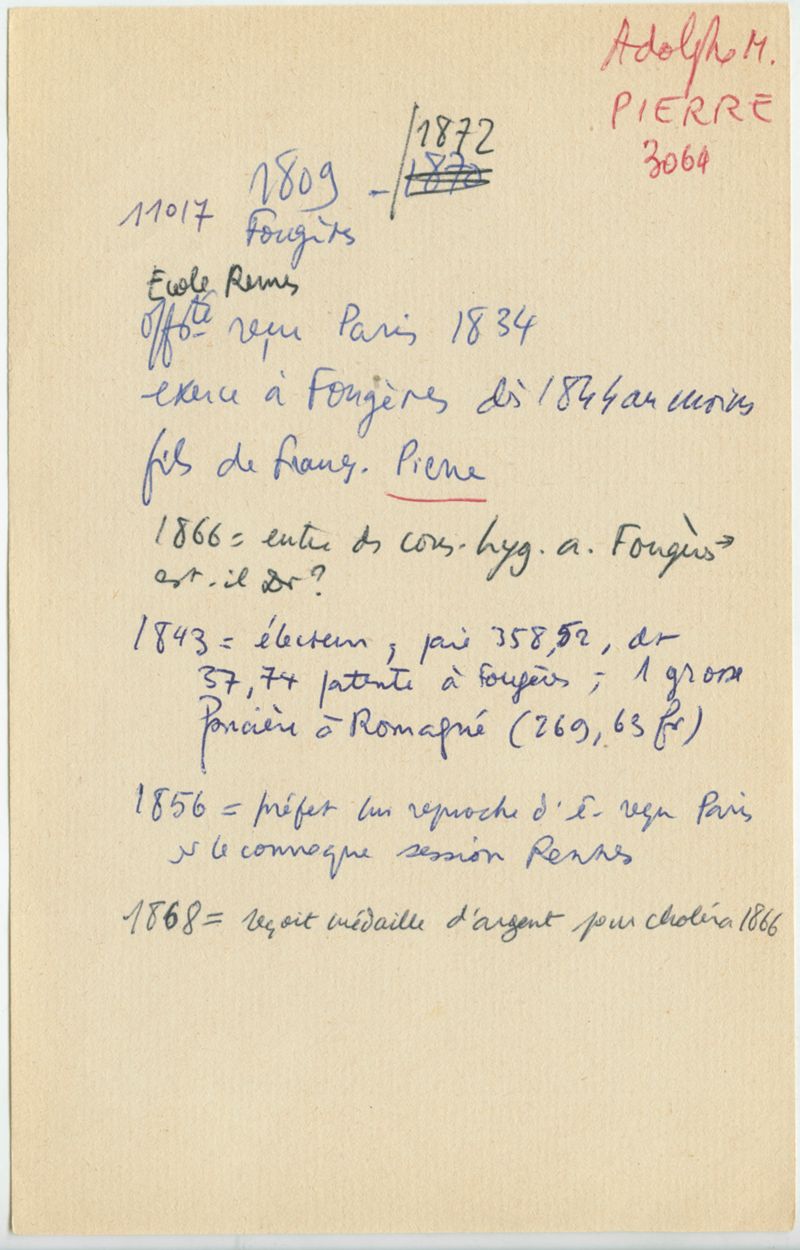 Adolphe M.
PIERRE
3064
1872
1809 - 1870
11017
Fougères
Ecole Rennes
offté reçu Paris 1834
exerce à Fougères dès 1844 au moins
fils de Franç. Pierre
1866 = entre ds cons. hyg. a. Fougères →
est-il Dr ?
1843 = électeur ; paie 358,52, dt
37,74 patente à Fougères ; 1 grosse
foncière à Romagné (269,63 fr)
1856 = préfet lui reproche d'ê. reçu Paris
le convoque session Rennes
1868 = reçoit médaille d'argent pour choléra 1866